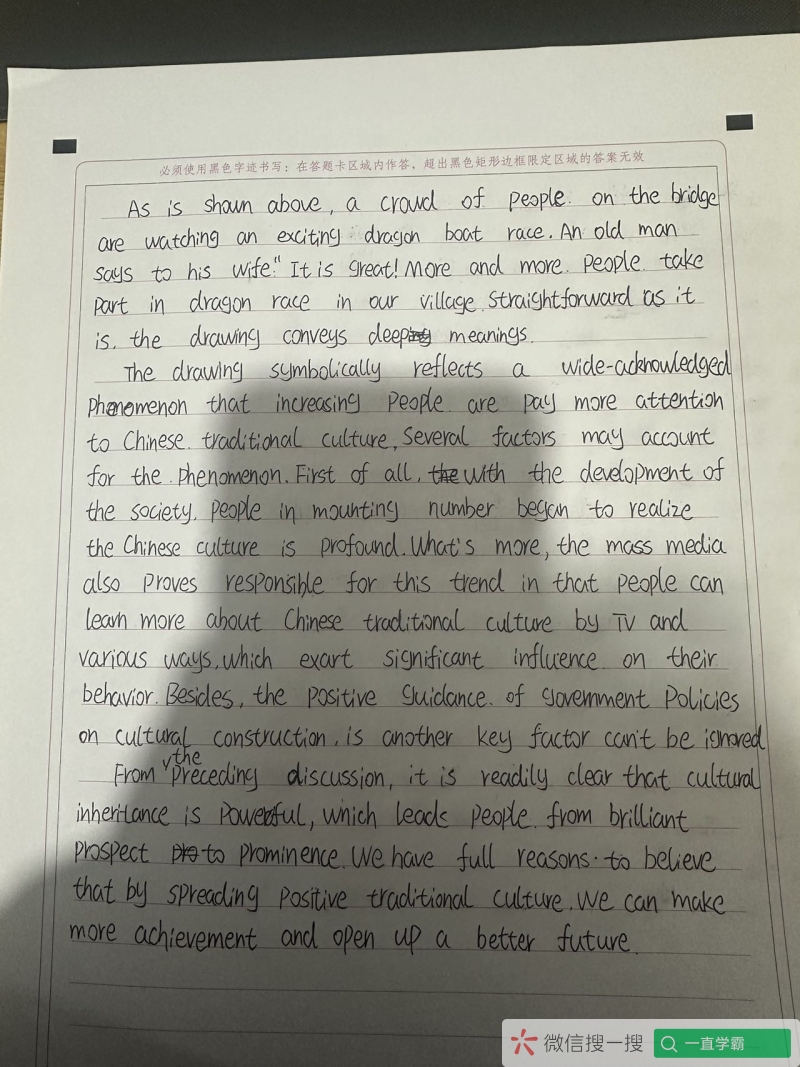 必须使用黑色字迹书写:在答题卡区域内作答,超出黑色矩形边框限定区域的答案无效
As is shown above, a crowd of people on the bridge
are watching an exciting dragon boat race. An old man
says to his wife:" It is great! More and more people take
part in dragon race in our village. Straightforward as it
is, the drawing conveys deep meanings.
The drawing symbolically reflects a wide-acknowledged
phenomenon that increasing people are pay more attention
to Chinese traditional culture. Several factors may account
for the phenomenon. First of all, with the development of
the society, people in mounting number began to realize
the Chinese culture is profound. What's more, the mass media
also proves responsible for this trend in that people can
learn more about Chinese traditional culture by TV and
various ways, which exart significant influence on their
behavior. Besides, the positive guidance of government policies
on cultural construction, is another key factor can't be ignored
From the preceding discussion, it is readily clear that cultural
inheritance is powerful, which leads people from brilliant
prospect to prominence. We have full reasons to believe
that by spreading positive traditional culture. We can make
more achievement and open up a better future.
微信搜一搜
一直学霸